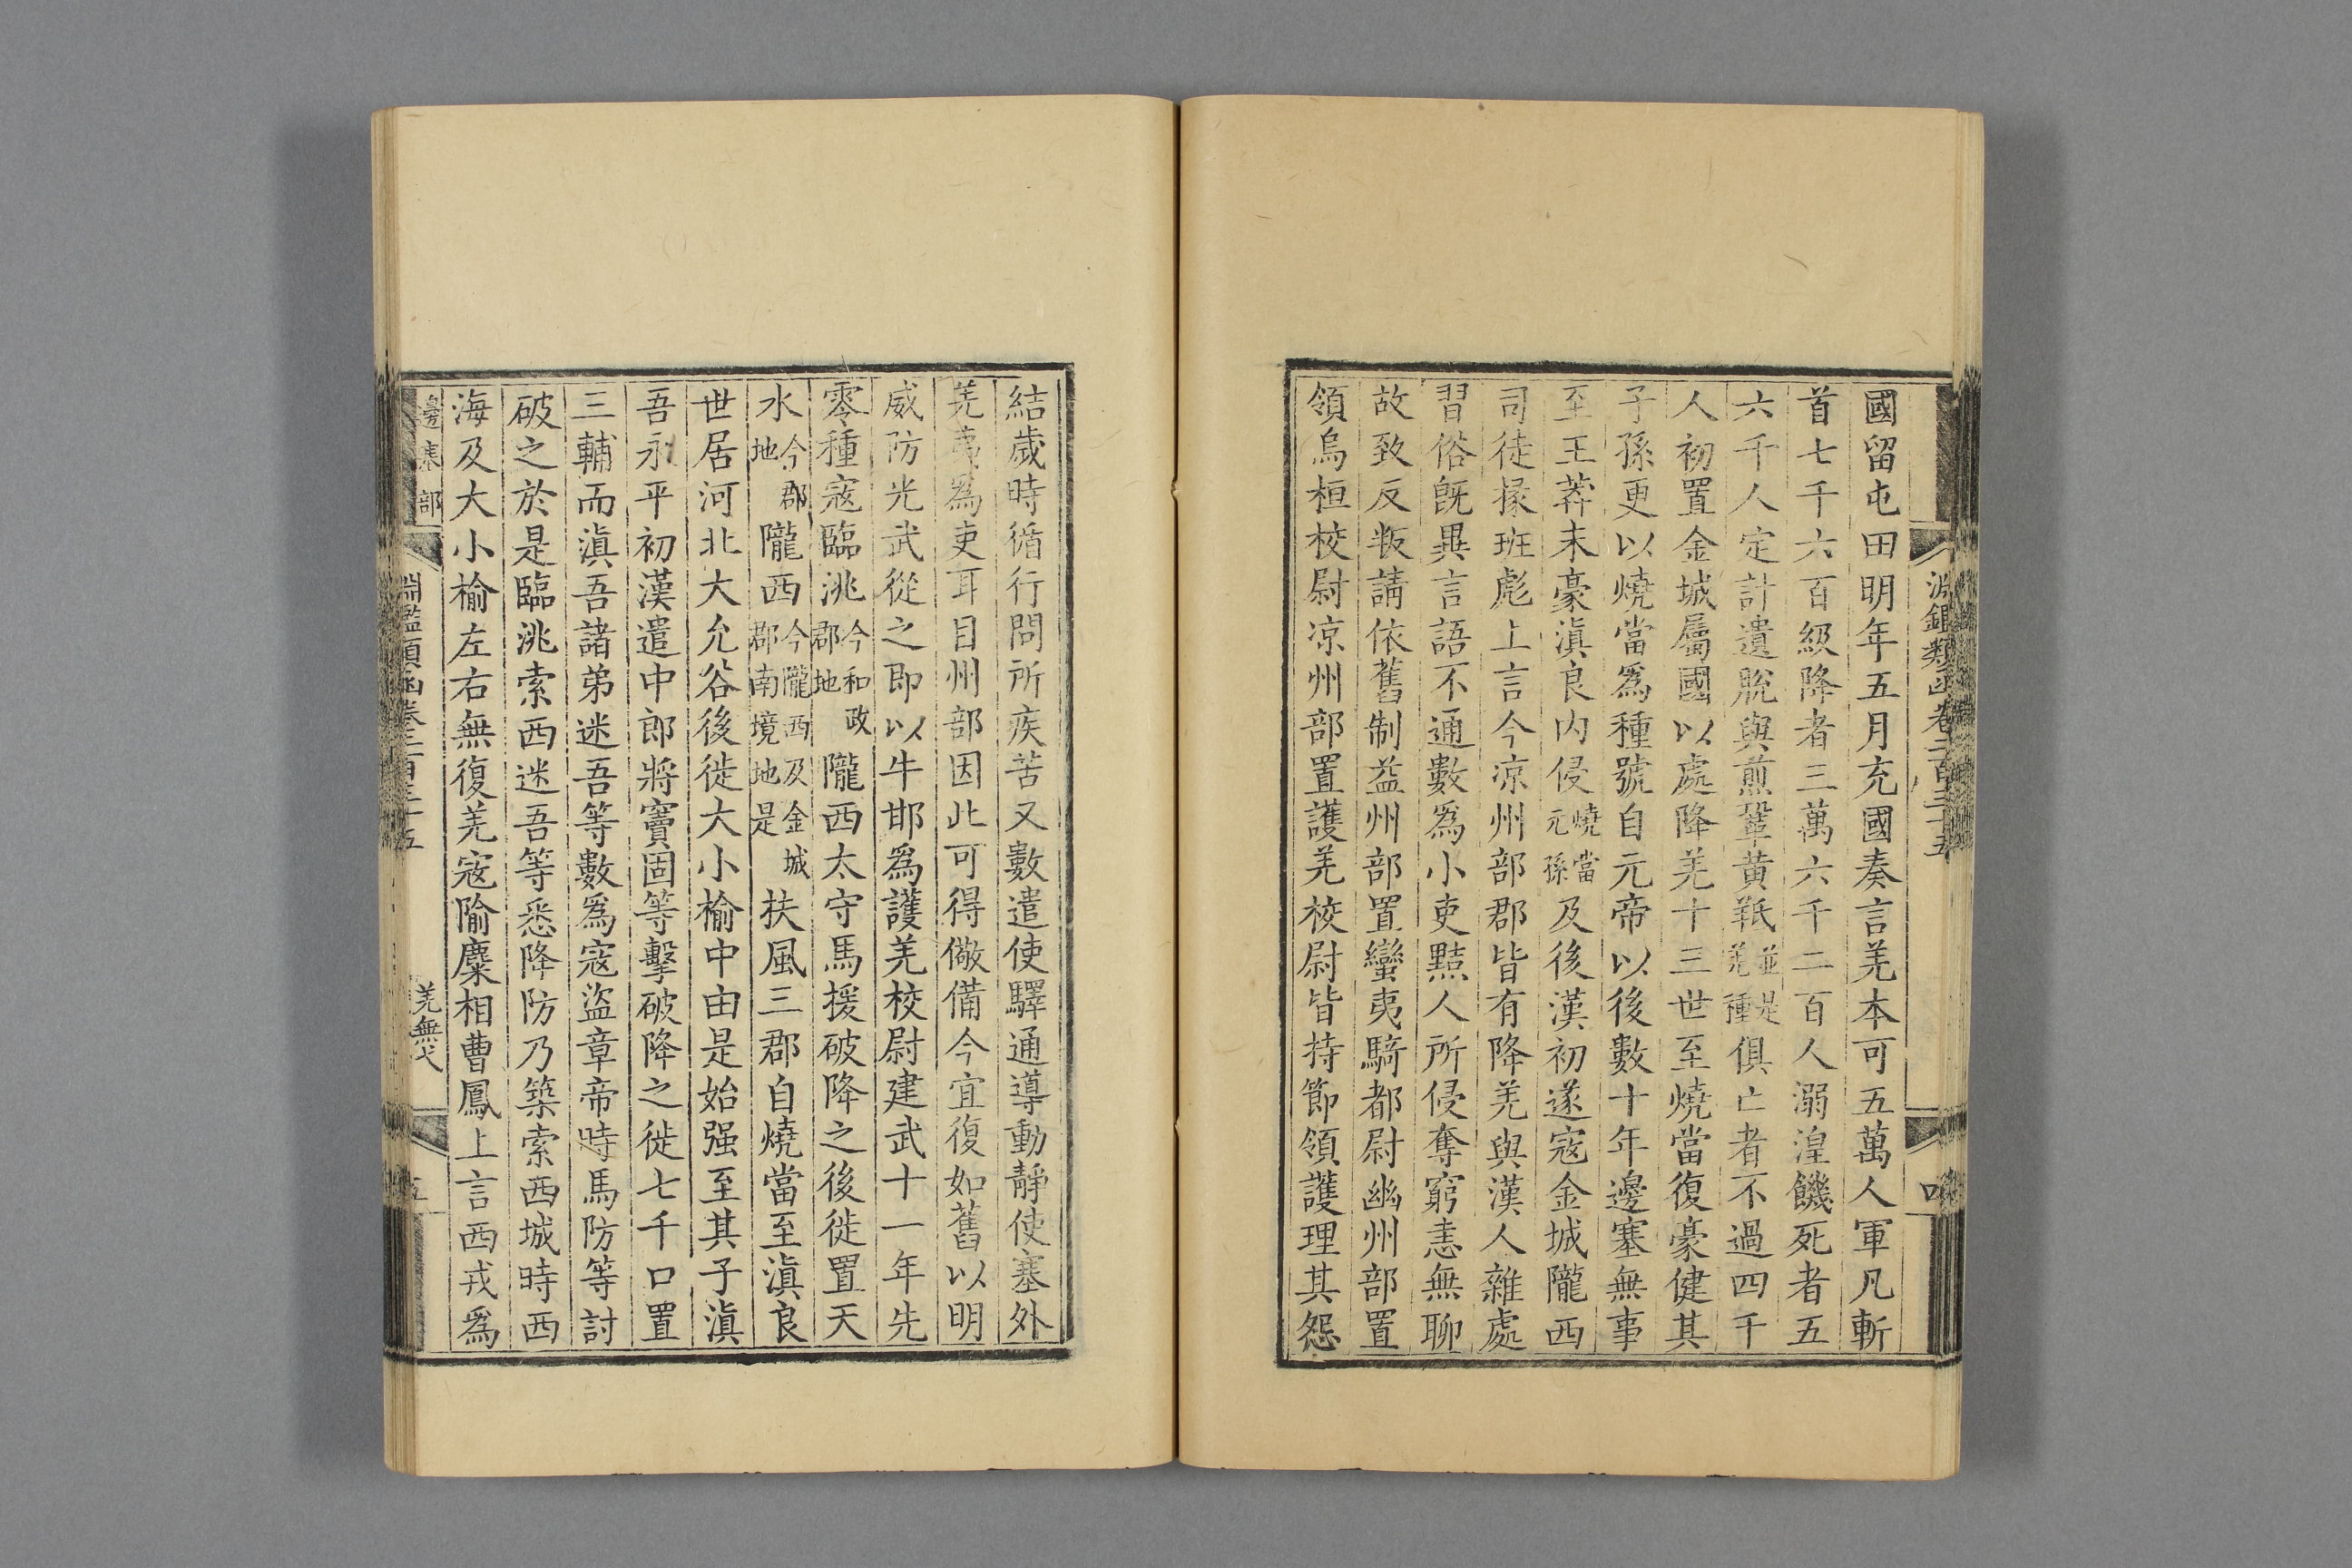 淵鑑類函卷二百三十五
國留屯田明年五月充國奏言羌本可五萬人軍凡斬
首七千六百級降者三萬六千二百人溺湟饑死者五
六千人定計遺脫與煎鞏黃羝並是羌種俱亡者不過四千
人初置金城屬國以處降羌十三世至燒當復豪健其
子孫更以燒當爲種號自元帝以後數十年邊塞無事
至王莽末豪滇良內侵燒當元孫及後漢初遂寇金城隴西
司徒掾班彪上言今凉州部郡皆有降羌與漢人雜處
習俗旣異言語不通數爲小吏黠人所侵奪窮恚無聊
故致反叛請依舊制益州部置蠻夷騎都尉幽州部置
領烏桓校尉凉州部置護羌校尉皆持節領護理其怨
結歲時循行問所疾苦又數遣使驛通導動靜使塞外
羌夷爲吏耳目州部因此可得儆備今宜復如舊以明
威防光武從之即以牛邯爲護羌校尉建武十一年先
零種寇臨洮今和政郡地隴西太守馬援破降之後徙置天
水今郡地隴西今隴西及金城郡南境地是扶風三郡自燒當至滇良
世居河北大允谷後徙大小榆中由是始强至其子滇
吾永平初漢遣中郎將竇固等擊破降之徙七千口置
三輔而滇吾諸弟迷吾等數爲寇盜章帝時馬防等討
破之於是臨洮索西迷吾等悉降防乃築索西城時西
海及大小榆左右無復羌寇隃麋相曹鳳上言西戎爲
邊塞部
淵鑑類函卷二百三十五
羌無弋
五